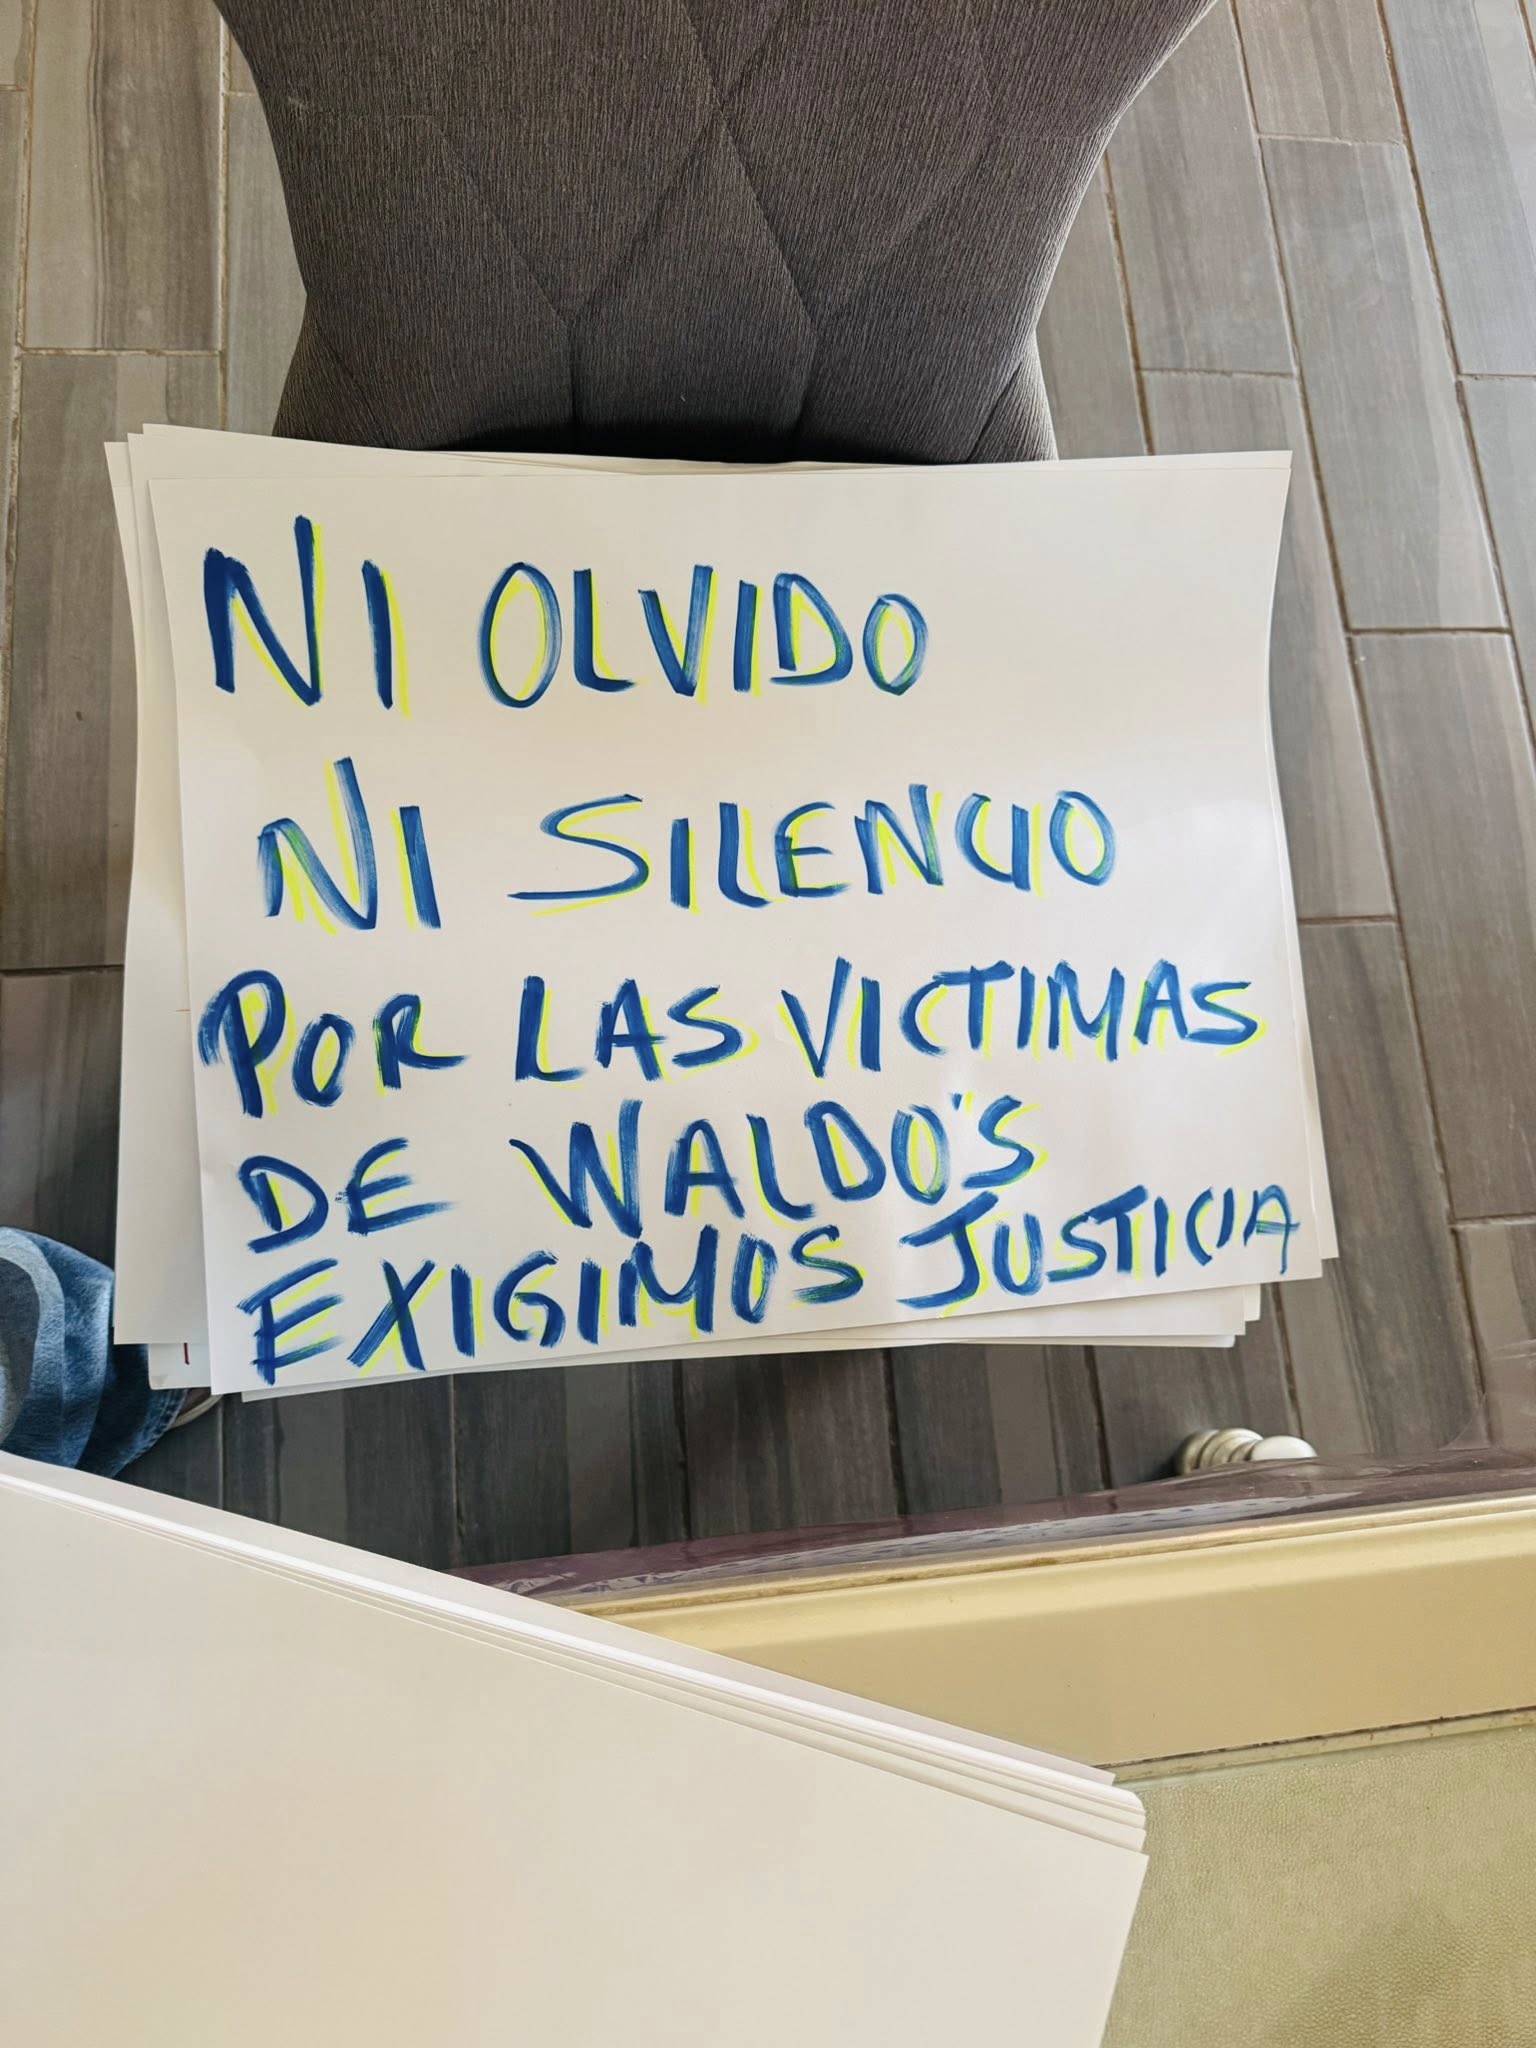 NI OLVIDO
NI SILENCIO
POR LAS VICTIMAS
DE WALDO'S
EXIGIMOS JUSTICIA